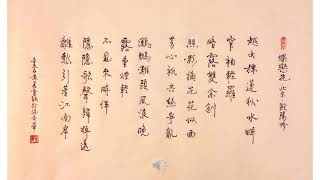 蝶戀花 北宋 歐陽修
越女採蓮秋水畔
窄袖輕羅
暗露雙金釧
照影摘花花似面
芳心祇共絲爭亂
鸂鶒灘頭風浪晚
霧重煙輕
不見來時伴
隱隱歌聲歸棹遠
離愁引著江南岸